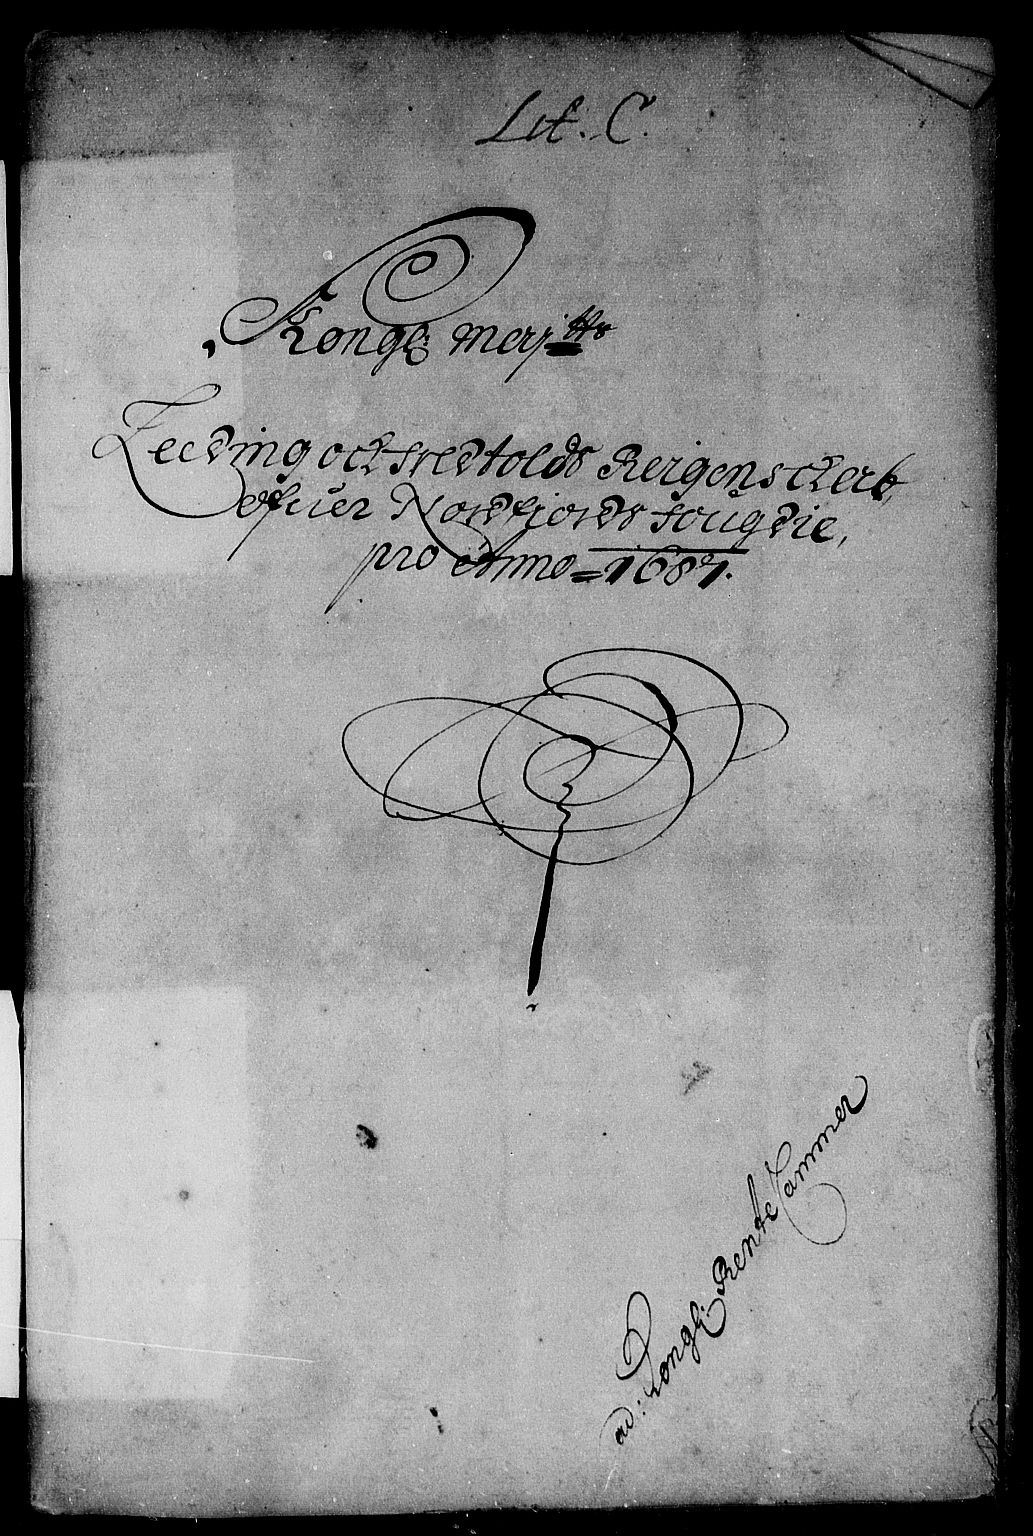 Lit. C.
Kongl: Maj:tts
Leeding och Wedtolds Regenschab,
ofuer Nordfiords fougdie,
pro Anno = 1687.
ad: Kongl: Rente Cammer